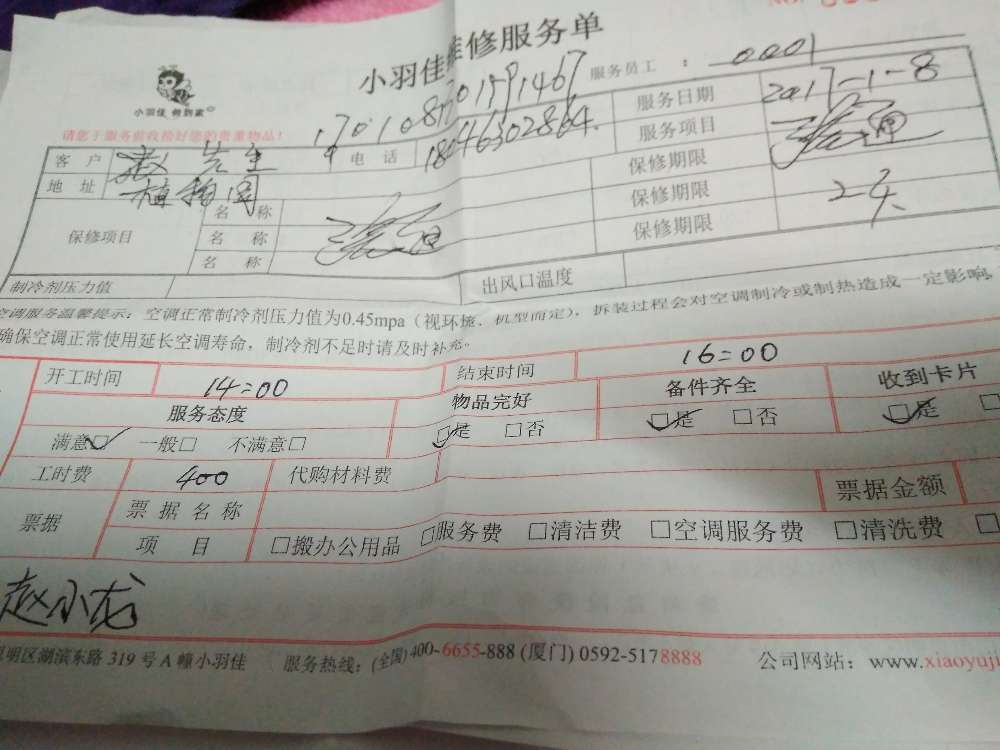 小羽佳维修服务单
小羽佳 帮到家
请您于服务前收捡好您的贵重物品！
服务员工 ： 0001
客 户 赵先生 电 话 18046302864. 服务日期 2017-1-8
地 址 植物园 服务项目 疏通
保修项目 名 称 疏通 保修期限 2天
名 称 保修期限
名 称 保修期限
制冷剂压力值 出风口温度
空调服务温馨提示：空调正常制冷剂压力值为0.45mpa（视环境、机型而定），拆装过程会对空调制冷或制热造成一定影响，
确保空调正常使用延长空调寿命，制冷剂不足时请及时补充。
开工时间 14=00 结束时间 16=00
服务态度 物品完好 备件齐全 收到卡片
满意☑ 一般□ 不满意□ ☑是 □否 ☑是 □否 ☑是 □
工时费 400 代购材料费
票据 票 据 名 称 票据金额
项 目 □搬办公用品 □服务费 □清洁费 □空调服务费 □清洗费 □
赵小龙
明区湖滨东路 319 号 A 幢小羽佳 服务热线：(全国)400-6655-888 (厦门) 0592-5178888 公司网站：www.xiaoyuji